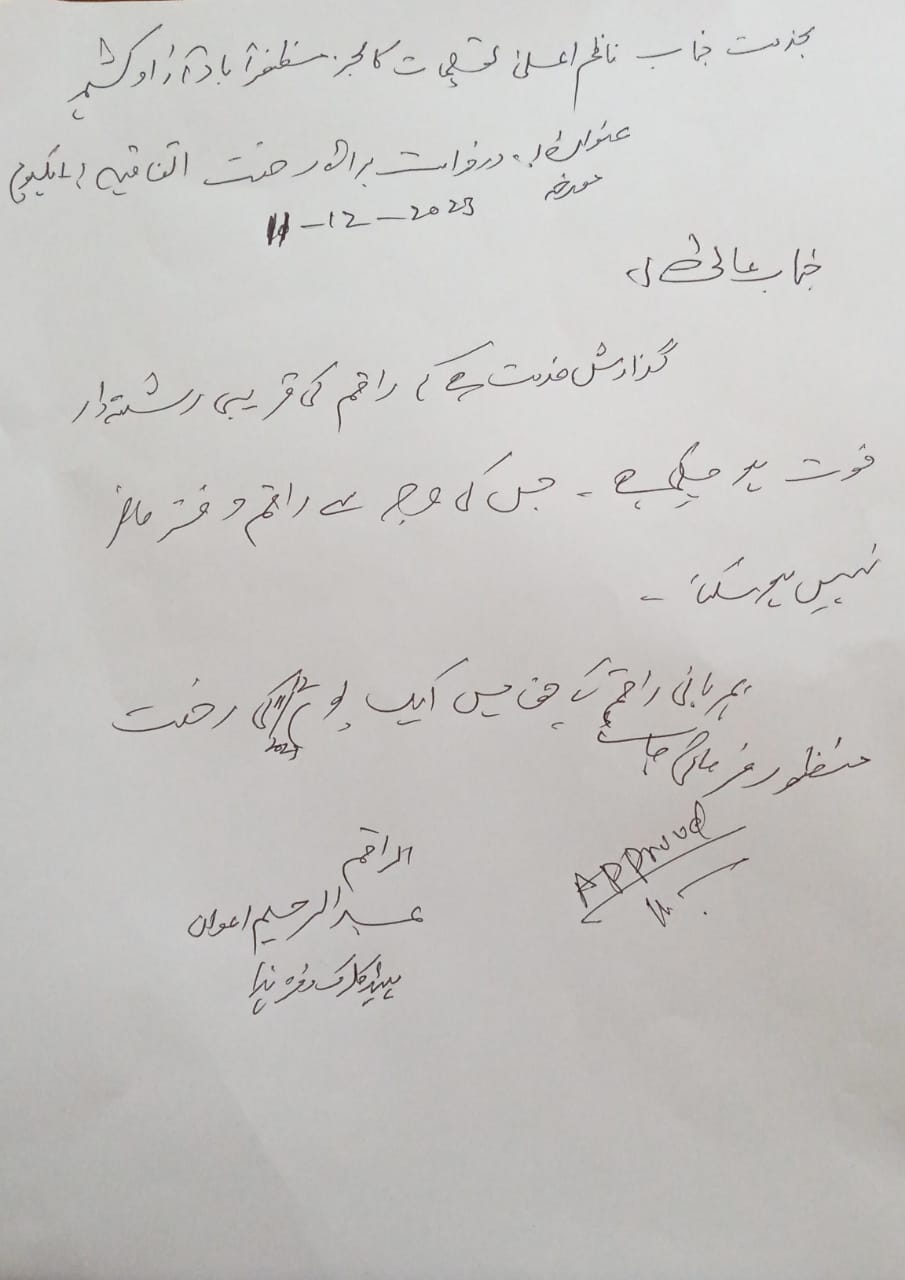 بخدمت جناب ناظم اعلیٰ تعلیمات کالجز مظفرآباد آزاد کشمیر
عنوان:۔ درخواست برائے رخصت اتفاقیہ ایک یوم
مورخہ 11-12-2023
جناب عالی!
گزارش خدمت ہے کہ راقم کی قریبی رشتہ دار
فوت ہو چکی ہے ۔ جس کی وجہ سے راقم دفتر حاضر
نہیں ہو سکتا ۔
مہربانی راقم کے حق میں ایک یوم 11/12/2023 کی رخصت
منظور فرمائی جائے
Approved
الراقم
عبدالرحیم اعوان
ہیڈ کلرک دفتر ہذا